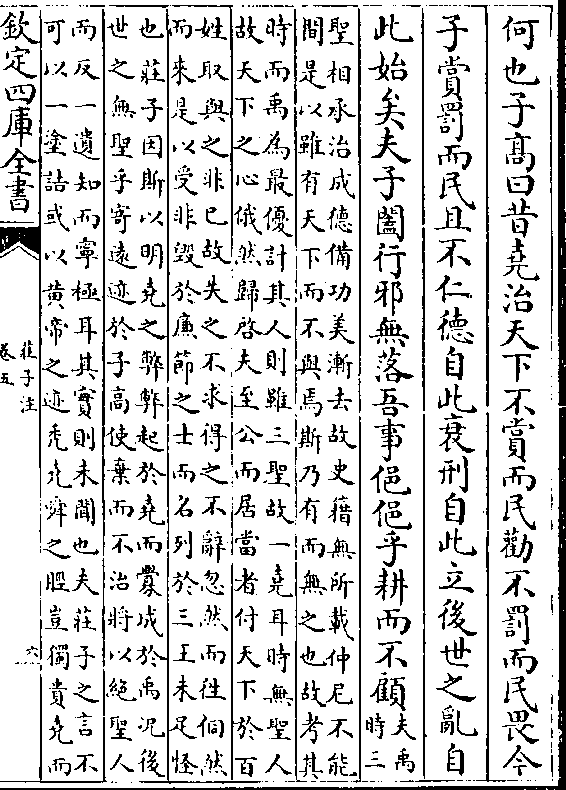 何也子髙曰昔堯治天下不賞而民勸不罰而民畏今
子賞罰而民且不仁德自此衰刑自此立後世之亂自
此始矣夫子闔行邪無落吾事俋俋乎耕而不顧
夫禹
時三
聖相承治成德備功美漸去故史籍無所載仲尼不能
間是以雖有天下而不與焉斯乃有而無之也故考其
時而禹為最優計其人則雖三聖故一堯耳時無聖人
故天下之心俄然歸啓夫至公而居當者付天下於百
姓取與之非已故失之不求得之不辭忽然而徃侗然
而來是以受非毀於廉節之士而名列於三王未足怪
也莊子因斯以明堯之弊弊起於堯而釁成於禹况後
世之無聖乎寄逺迹於子高使棄而不治將以絶聖人
而反一遺知而寧極耳其實則未聞也夫莊子之言不
可以一塗詰或以黄帝之迹秃堯舜之脛豈獨貴堯而
欽定四庫全書
莊子注
卷五
六